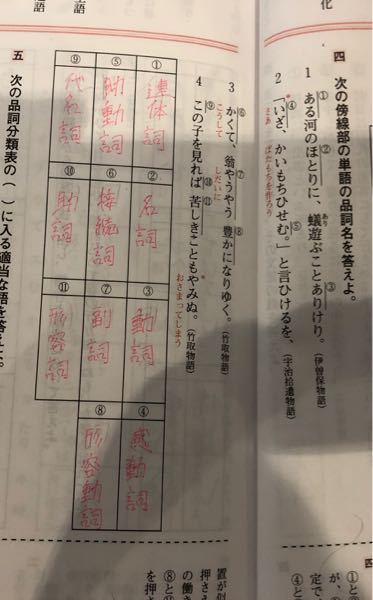 四 次の傍線部の単語の品詞名を答えよ。
1 ①ある河の②ほとりに、蟻遊ぶこと③ありけり。(伊曽保物語)
あり
2 「④いざ、かいもちひせ⑤む。」と言ひけるを、(宇治拾遺物語)
さあ ぼたもちを作ろう
3 ⑥かくて、翁⑦やうやう⑧豊かになりゆく。(竹取物語)
こうして しだいに
4 ⑨この子を見れ⑩ば、⑪苦しきこともやみぬ。(竹取物語)
おさまってしまう
① 連体詞
② 名詞
③ 動詞
④ 感動詞
⑤ 助動詞
⑥ 接続詞
⑦ 副詞
⑧ 形容動詞
⑨ 代名詞
⑩ 助詞
⑪ 形容詞
五 次の品詞分類表の( )に入る適当な語を答えよ。